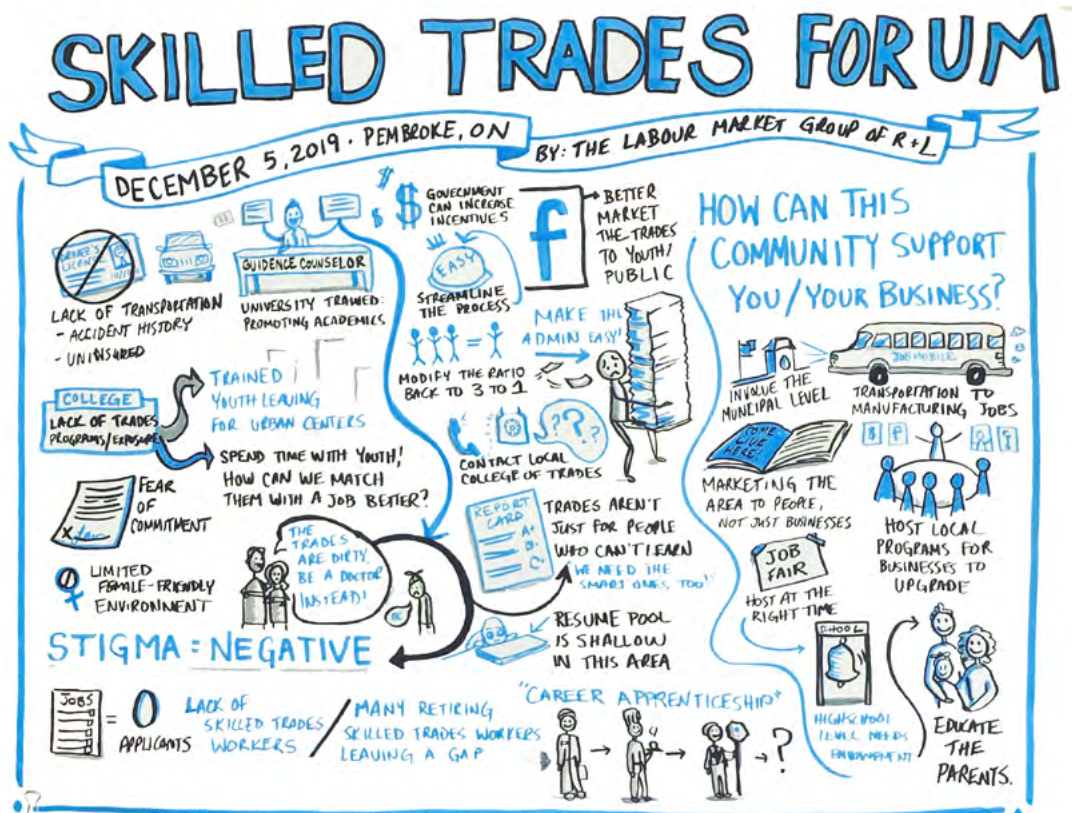 SKILLED TRADES FORUM
DECEMBER 5, 2019 · PEMBROKE, ON
BY: THE LABOUR MARKET GROUP OF R+L
DRIVER'S
LICENSE
LACK OF TRANSPORTATION
- ACCIDENT HISTORY
- UNINSURED
GUIDENCE COUNSELOR
UNIVERSITY TRAINED:
PROMOTING ACADEMICS
COLLEGE
LACK OF TRADES
PROGRAMS/EXPOSURE
TRAINED
YOUTH LEAVING
FOR URBAN CENTERS
SPEND TIME WITH YOUTH!
HOW CAN WE MATCH
THEM WITH A JOB BETTER?
FEAR
OF
COMMITMENT
LIMITED
FEMALE-FRIENDLY
ENVIRONMENT
THE
TRADES
ARE DIRTY,
BE A DOCTOR
INSTEAD!
STIGMA = NEGATIVE
JOBS
= 0
APPLICANTS
LACK OF
SKILLED TRADES
WORKERS
/
MANY RETIRING
SKILLED TRADES WORKERS
LEAVING A GAP
$ $ $
GOVERNMENT
CAN INCREASE
INCENTIVES
EASY
STREAMLINE
THE PROCESS
f
BETTER
MARKET
THE TRADES
TO YOUTH/
PUBLIC
=
MODIFY THE RATIO
BACK TO 3 TO 1
MAKE THE
ADMIN EASY!
? ? ?
CONTACT LOCAL
COLLEGE OF TRADES
REPORT
CARD
A+
B-
C+
TRADES AREN'T
JUST FOR PEOPLE
WHO CAN'T LEARN
"WE NEED THE
SMART ONES TOO!"
RESUME POOL
IS SHALLOW
IN THIS AREA
"CAREER APPRENTICESHIP"
?
HOW CAN THIS
COMMUNITY SUPPORT
YOU/YOUR BUSINESS?
INVOLVE THE
MUNCIPAL LEVEL
JOBMOBILE
TRANSPORTATION TO
MANUFACTURING JOBS
COME
LIVE
HERE!
MARKETING THE
AREA TO PEOPLE,
NOT JUST BUSINESSES
HOST LOCAL
PROGRAMS FOR
BUSINESSES TO
UPGRADE
JOB
FAIR
HOST AT THE
RIGHT TIME
SCHOOL
HIGHSCHOOL
LEVEL NEEDS
EDUCATE
THE
PARENTS.